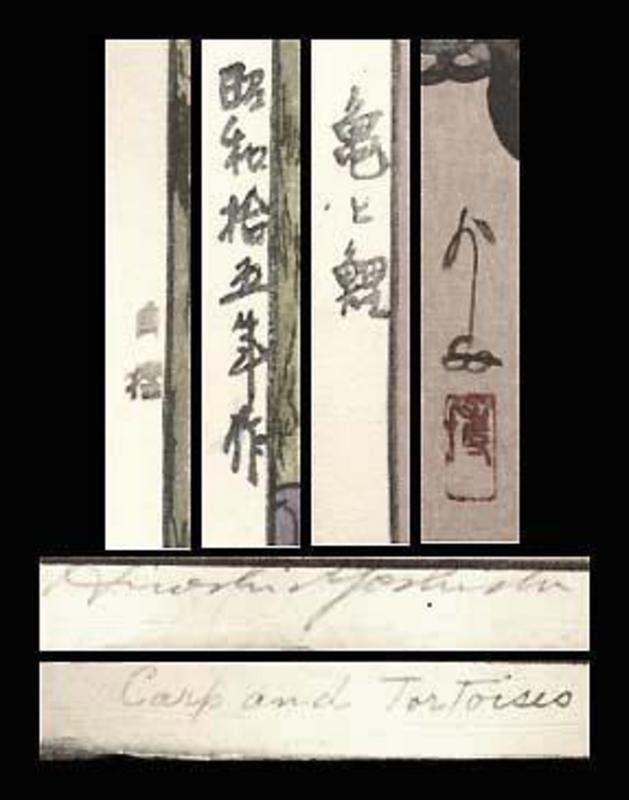 自摺
昭和拾五年作
亀と鯉
Hiroshi Yoshida
Carp and Tortoises